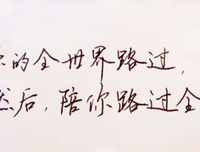 的全世界路过，
然后，陪你路过全